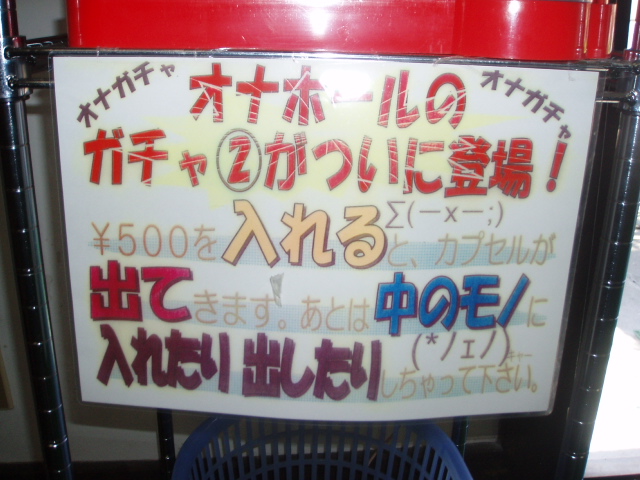 オナガチャ
オナガチャ
オナホールの
ガチャ②がついに登場！
¥500を入れるΣ(ー×ー;)と、カプセルが
出てきます。あとは中のモノに
入れたり出したり(*ﾉｪﾉ)ｷｬーしちゃって下さい。